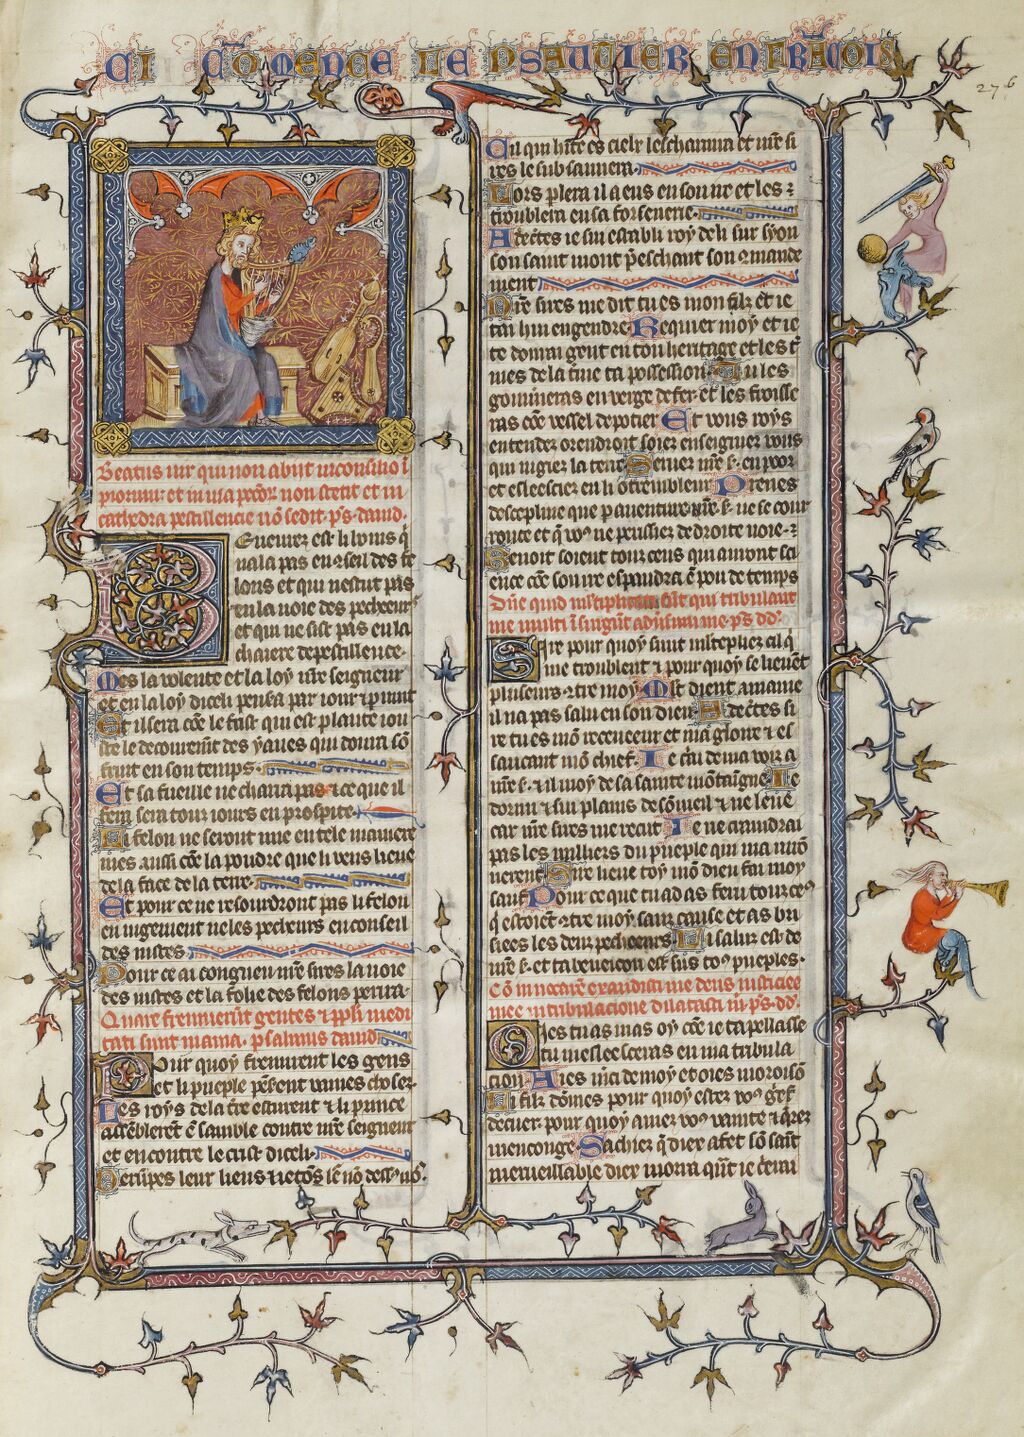 CI CŌMENCE LE PSAUTIER EN FRĀCOIS
276
Beatus uir qui non abiit in consilio ī
piorum: et in uia pccōꝝ non stetit et in
cathedra pestilencie nō sedit. ps. dauid.
Beneurez est li homs q̄
nala pas en cōseil des fe
lons et qui nestut pas
en la uoie des pecheeurs
et qui ne sist pas en la
chaiere de pestillence.
Mes la uolente et la loy nr̄e seigneur
et en la loy diceli pensa par iour & p̄ nuit
Et il sera cōe le fust qui est plante iou
ste le decourem̄t des yaues qui donra sō
fruit en son temps.
Et sa fueille ne charra pas & ce que il
fera sera tour iours en prosp̄ite.
Li felon ne seront mie en tele maniere
mes aussi cōe la poudre que li uens lieue
de la face de la terre.
Et pour ce ne resourdront pas li felon
en iugement ne les pecheurs en conseil
des iustes
Pour ce ai congneu nr̄e sires la uoie
des iustes et la folie des felons perira.
Quare fremuerūt gentes et ppl̄i medi
tati sunt inania. psalmus dauid
Pour quoy fremirent les gens
et li pueple pēsent uaines choses.
Les roys de la tr̄e esturent & li prince
assēblerēt ē semble contre nr̄e seigneur
et encontre le crist diceli.
Derūpes leur liens
Cil qui hīte es ciex les chamna et nr̄e si
res le subsannera.
Lors plera il a eus en son ire et les &
troublera en sa forsenerie.
Adectes ie sui establi roy de li sur syon
son saint mont p̄eschant son cmande
ment
Nr̄e sires me dit tu es mon filz et ie
tai hui engendre Requier moy et ie
te donrai gent en ton heritage et les t̄
mes de la t̄rre ta possession. Tu les
gouuneras en verge de fer. et les froisse
ras cōe vessel de potier Et vous roys
entendez orendroit soiez enseigniez vous
qui iugiez la terre Seruez nr̄e s̄. en poor
et esleesciez en li ō trembleur Prenes
descepline que p auenture nr̄e s̄. ne se cour
rouce et q̄ voꝰ ne perissiez de droite uoie.
Benoit soient tour ceus qui auront fi
ence cōe son ire espandra ē pou de temps
Dn̄e quid mlt̄iplicati sūt qui tribulant
me multi īsurgūt aduersum me. ps. dd.
Sire pour quoy sunt mlt̄epliez cil q̄
me troublent & pour quoy se lieuēt
plusieurs ctre moy Mlt̄ dient a mame
il na pas salu en son dieu Adectes si
re tu es mō receueeur et ma gloire & es
sauçant mō chief. Ie c̄ai de ma voiz a
nr̄e s̄. & il moy de sa sainte mōtaigne Ie
dormi & fui plains de sōmeil & me leue
car nr̄e sires me recut Ie ne craindrai
pas les milliers du pueple qui ma auirō
nerent Sire lieue toy mō dieu fai moy
sauf Pour ce que tu adas feru tour ceꝰ
q̄ estoiēt ctre moy sanz cause et as bri
siees les denz pecheeurs Li salus est de
nr̄e s̄. et ta beneicon est sus toꝰ pueples.
Cō inuocarē exaudiuit me deus iusticiee
mee in tribulacione dilatasti m̄. ps. dd.
Dies tu as mas oy cōe ie tapellasse
tu mesleesceras en ma tribula
cion Aies m̄ci de moy et oies moroisō
Li filz dōmes pour quoy estez voꝰ
pour quoy amez voꝰ vanite & q̄rez
menconge. Sachiez q̄ diex a fet sō saīt
merueillable diex morra quāt ie c̄erai